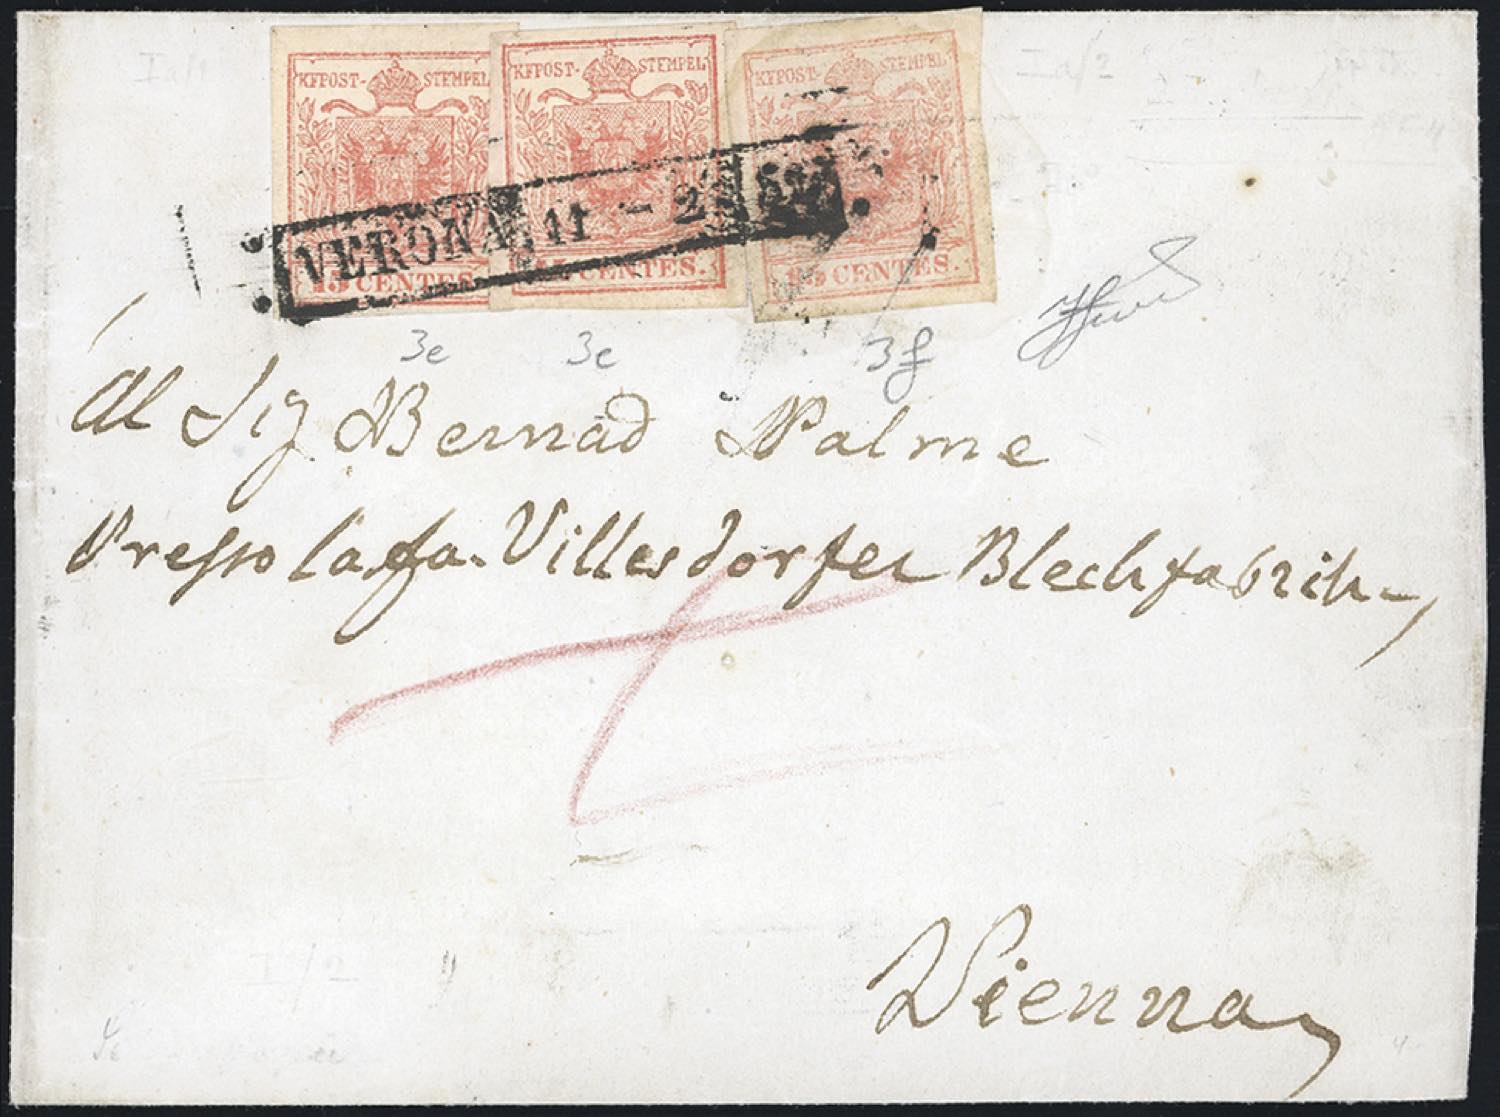 KKPOST-STEMPEL KKPOST-STEMPEL KKPOST-STEMPEL
VERONA 11 - 2
15 CENTES. 15 CENTES. 15 CENTES.
3e 3e 3f
Al Sig Bernad Palme
Presso la fa. Villesdorfer Blechfabrik
Vienna
Ia/2
I/2